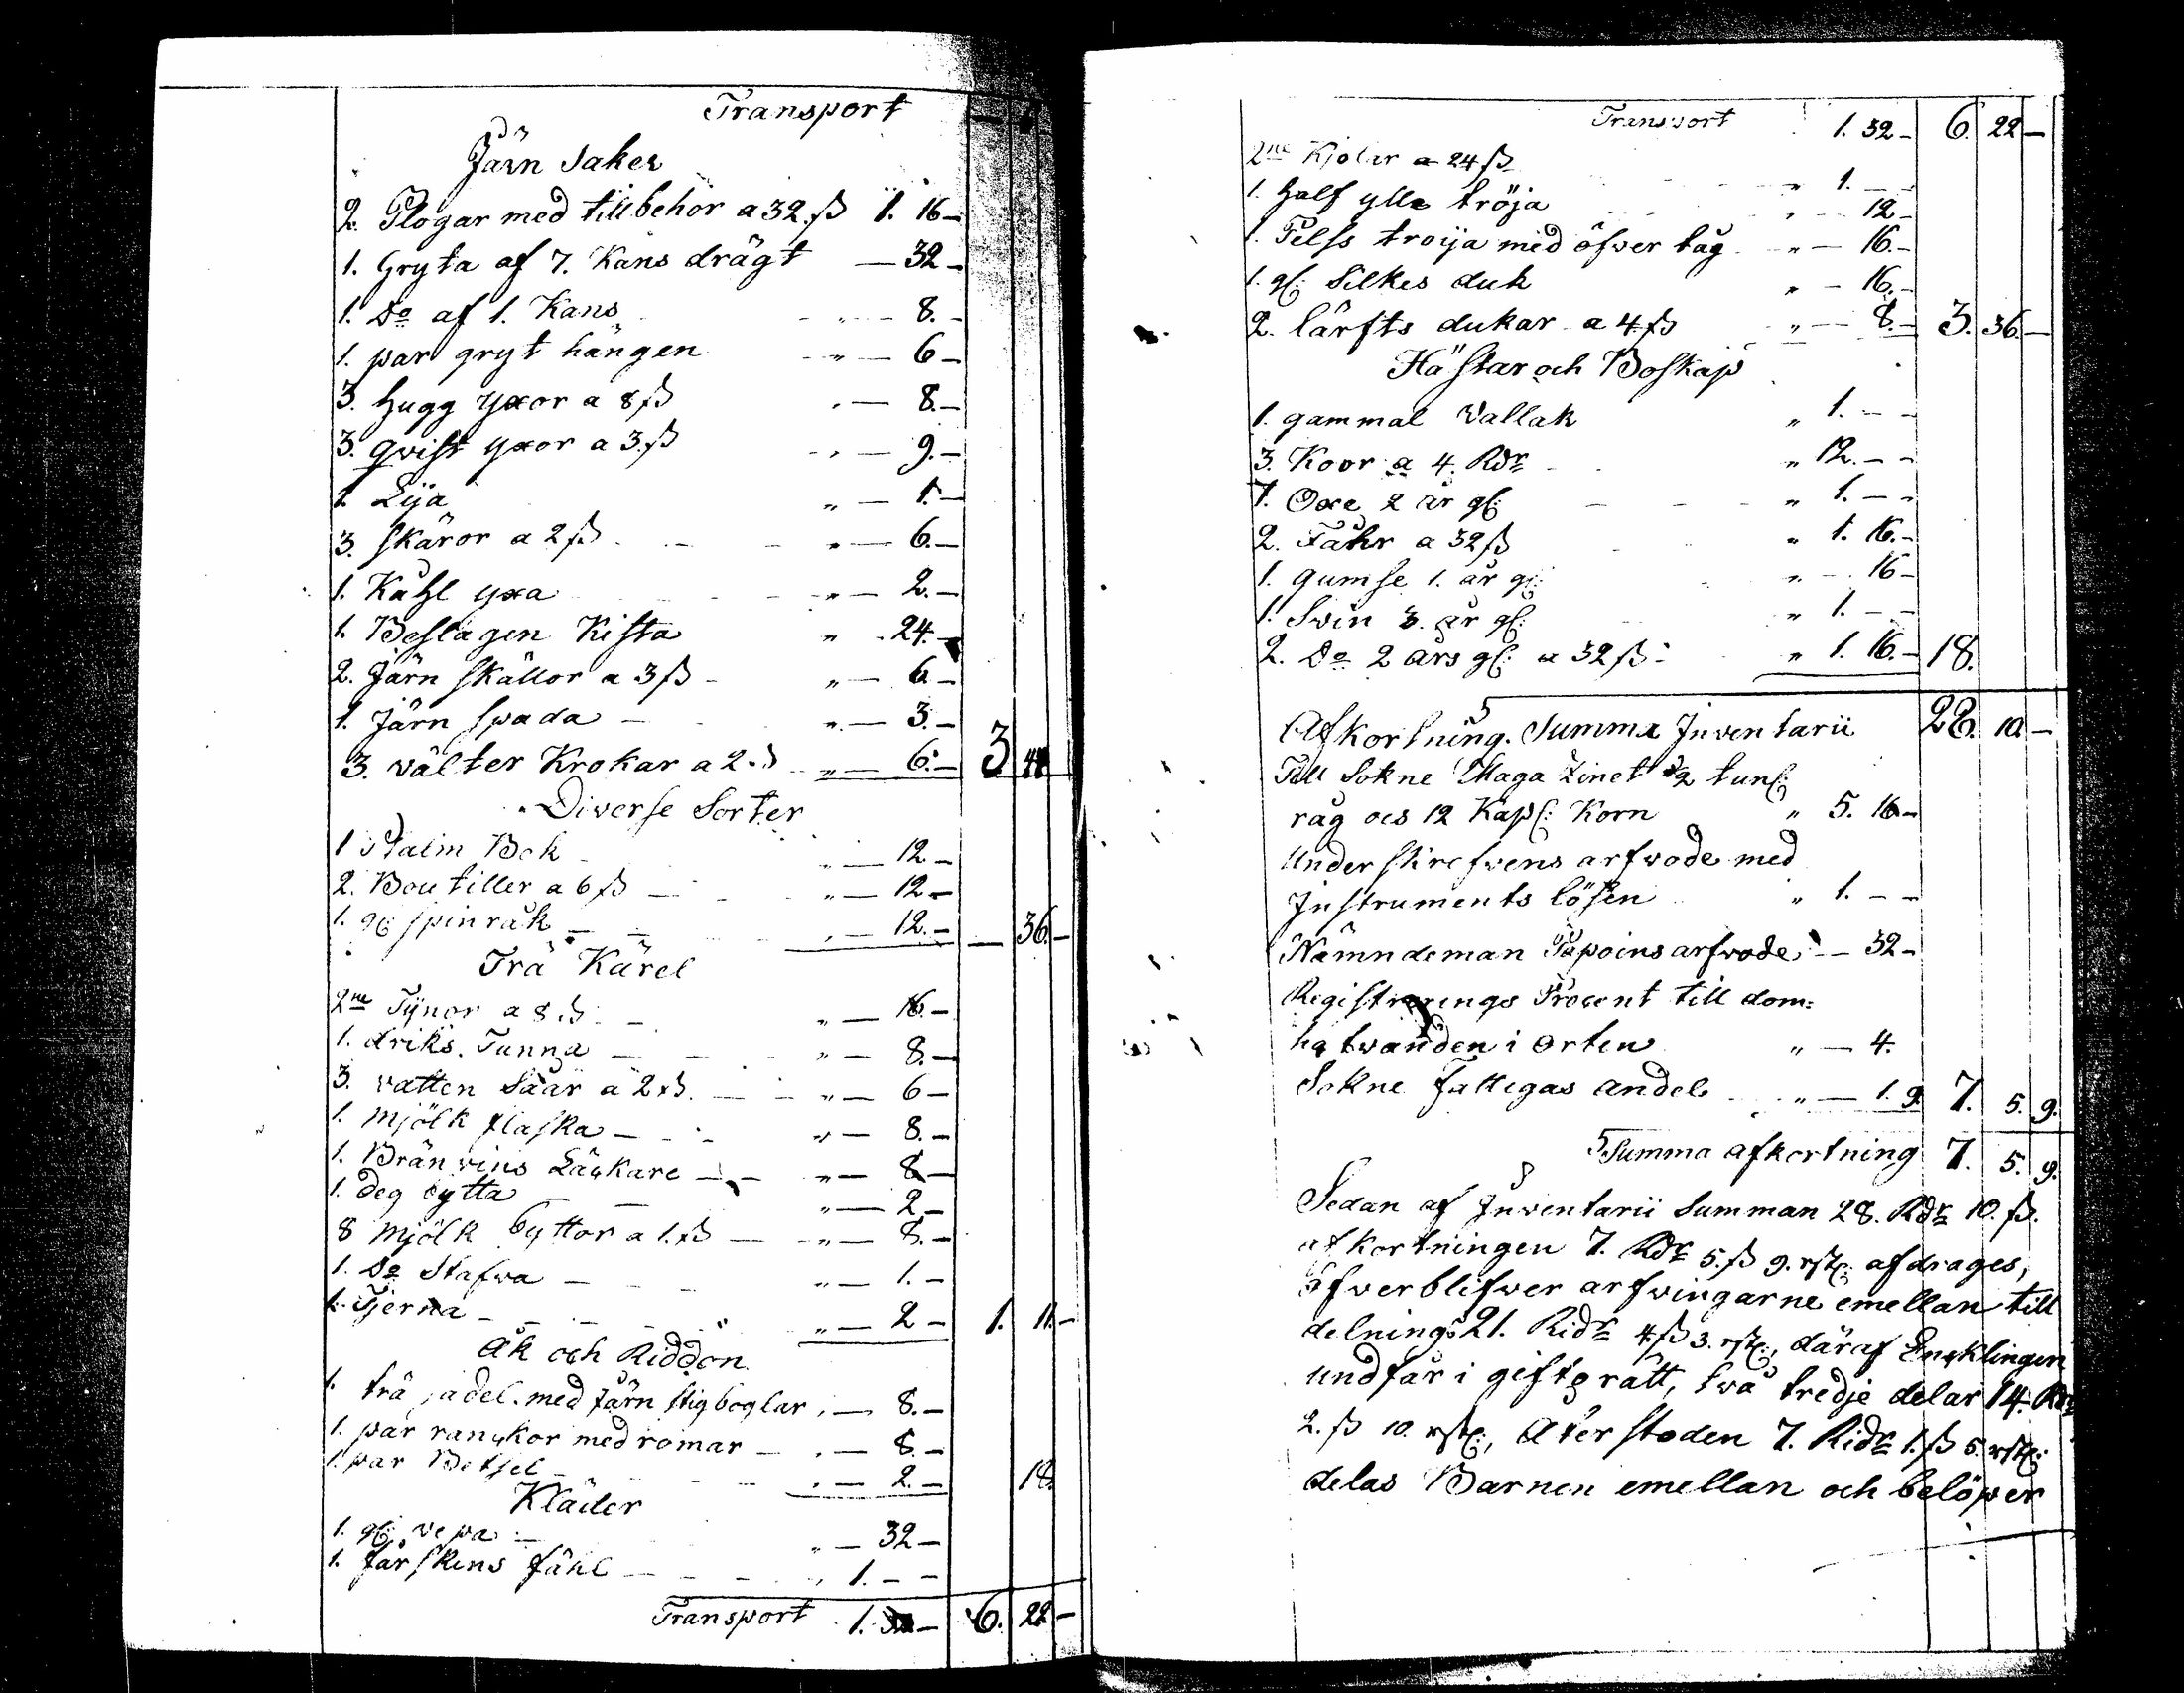 Transport
Järn Saker
2. Plogar med tillbehör a 32. ß 1. 16 –
1. Gryta af 7. Kans drägt — 32 –
1. Do af 1. Kans „ — 8. –
1. par gryt hängen „ — 6 –
3. hugg yxor a 8 ß „ — 8. –
3. qvist yxor a 3. ß „ — 9. –
1. Lija „ — 1. –
3. skäror a 2 ß „ — 6. –
1. Kåhl yxa „ — 2. –
1. Beslagen Kista „ 24. –
2. Järn skällor a 3 ß „ — 6 –
1. Järn spada „ — 3. –
3. välter Krokar a 2. ß „ — 6. – 3
Diverse Sorter
1 Psalm Bok „ — 12 –
2. Bouteller a 6 ß „ — 12 –
1. gl: spinråk „ — 12. – — 36. –
Trä Kärel
2ne Tynor a 8. ß „ — 16. –
1. driks. Tunna „ — 8. –
3. vatten Såar a 2 ß „ — 6 –
1. mjölk flaska „ — 8. –
1. Bränvins Läckare „ — 8 –
1. deg bytta „ — 2 –
8 mjölk byttor a 1. ß „ — 8. –
1. Do Stafwa „ — 1. –
1. Tjerna „ — 2 – 1. 11. –
Åk och Riddon
1. trä sadel med järn stigboglar „ — 8. –
1. par ranckor med romar „ — 8. –
1. par Betsel „ — 2. – 18.
Kläder
1. gl: vepa „ — 32 –
1. får skins fähl „ 1. – –
Transport 1. – 6. 22 –
Transport 1. 32 – 6. 22 –
2ne Kjolar a 24 ß „ 1. – –
1. half ylle tröja „ — 12 –
1. Pelss troija med öfver tåg „ — 16. –
1. gl: Silkes duk „ — 16. –
2. lärfts dukar a 4 ß „ — 8. – 3. 36. –
Hästar och Boskap
1. gammal Vallak „ 1. – –
3. Koor a 4. Rdr „ 12. – –
1. Oxe 2 år gl: „ 1. – –
2. Fåhr a 32 ß „ 1. 16. –
1. gumse 1. år gl: „ — 16 –
1. Svin 3. år gl: „ 1. – –
2. Do 2 års gl: a 32 ß „ 1. 16. – 18.
Afkortning. Summa Inventarii 28. 10 –
Till Sokne Magazinet tun:
råg ocs 12 Kap: Korn „ 5. 16 –
Underskrefvens arfvode med
Instruments lösen „ 1. – –
Nämndeman arfvode – – 32 –
Registrerings Procent till dom:
hafwanden i Orten „ — 4.
Sokne Fattigas andel „ — 1. 9. 7. 5. 9.
Summa afkortning 7. 5. 9.
Sedan af Inventarii Summan 28. Rdr 10. ß.
afkortningen 7. Rdr 5. ß 9. rst: afdrages,
öfverblifver arfvingarne emellan till
delning 21. Ridr 4 ß 3. rst:, däraf Encklingen
undfår i giftorätt, två tredje delar 14. Rdr
2. ß 10. rst:, Återstoden 7. Ridr 1. ß 5. rst:
delas Barnen emellan och belöper